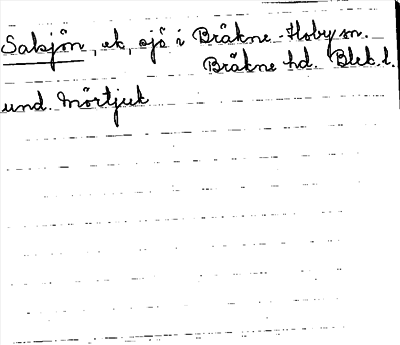 Saksjön, ek, sjö i Bräkne-Hoby sn.
Bräkne hd. Blek. l.
und. Mörtjuk